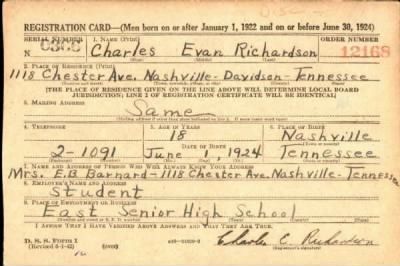 REGISTRATION CARD—(Men born on or after January 1, 1922 and on or before June 30, 1924)
SERIAL NUMBER 1. NAME (Print) ORDER NUMBER
N Charles Evan Richardson 12168
(First) (Middle) (Last)
2. PLACE OF RESIDENCE (Print)
1118 Chester Ave. Nashville-Davidson-Tennessee
(Number and street) (Town, township, village, or city) (County) (State)
[THE PLACE OF RESIDENCE GIVEN ON THE LINE ABOVE WILL DETERMINE LOCAL BOARD
JURISDICTION; LINE 2 OF REGISTRATION CERTIFICATE WILL BE IDENTICAL]
3. MAILING ADDRESS
Same
4. TELEPHONE 5. AGE IN YEARS 6. PLACE OF BIRTH
18 Nashville
DATE OF BIRTH (Town or county)
2-1091 June 1, 1924 Tennessee
(Exchange) (Number) (Mo.) (Day) (Yr.) (State or country)
7. NAME AND ADDRESS OF PERSON WHO WILL ALWAYS KNOW YOUR ADDRESS
Mrs. E.B. Barnard-1118 Chester Ave. Nashville-Tennessee
8. EMPLOYER'S NAME AND ADDRESS
Student
9. PLACE OF EMPLOYMENT OR BUSINESS
East Senior High School
(Number and street or R. F. D. number) (Town) (County) (State)
I AFFIRM THAT I HAVE VERIFIED ABOVE ANSWERS AND THAT THEY ARE TRUE.
D. S. S. FORM 1
(Revised 6-1-42) (over) Charles E. Richardson
(Registrant's signature)